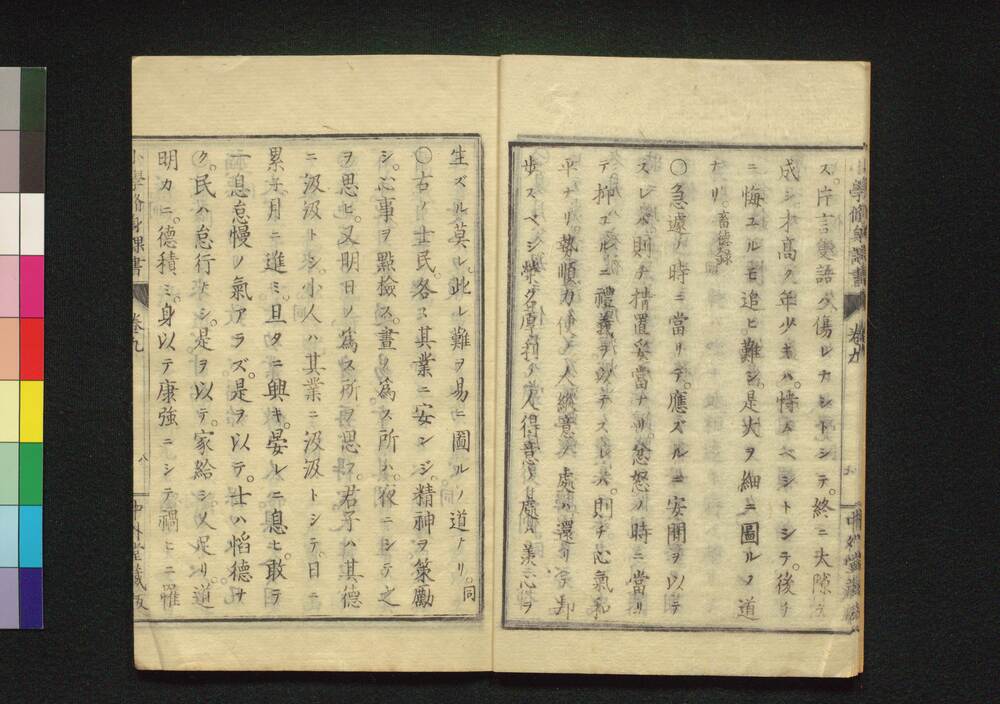 小學脩身課書 卷九 中外堂藏版
ス。片言隻語ハ傷レナシトシテ。終ニ大隙ヲ
成シ才高ク年少キハ。恃ムベシトシテ。後チ
ニ悔ユルモ追ヒ難シ。是大ヲ細ニ圖ルノ道
ナリ。畜德錄
〇急遽ノ時ニ當リテ。應ズルニ安閒ヲ以テ
スレバ則チ措置妥當ナリ。忿怒ノ時ニ當リ
テ抑ユルニ禮義ヲ以テスレバ。則チ心氣和
平ナリ。勢順力便ノ人縱意ノ處ハ還リ
歩スベシ榮名厚利ノ人得意ノ處
生ズル莫レ。此レ難ヲ易ニ圖ルノ道ナリ。同
〇古ノ士民。各ス其業ニ安ンジ。精神ヲ策勵
シ。心事ヲ點檢ス。晝ノ爲ス所ハ。夜ニシテ之
ヲ思ヒ。又明日ノ爲ス所ヲ思フ。君子ハ其德
ニ汲汲トシ。小人ハ其業ニ汲汲トシテ。日ニ
累ナ月ニ進ミ。旦タニ興キ。晏レニ息ヒ。敢テ
一息怠慢ノ氣アラズ。是ヲ以テ。士ハ慆德ナ
ク。民ハ怠行ナシ。是ヲ以テ。家給シ人足リ。道
明カニ。德積ミ。身以テ康強ニシテ禍ヒニ罹
小學脩身課書 卷九 八 中外堂藏版